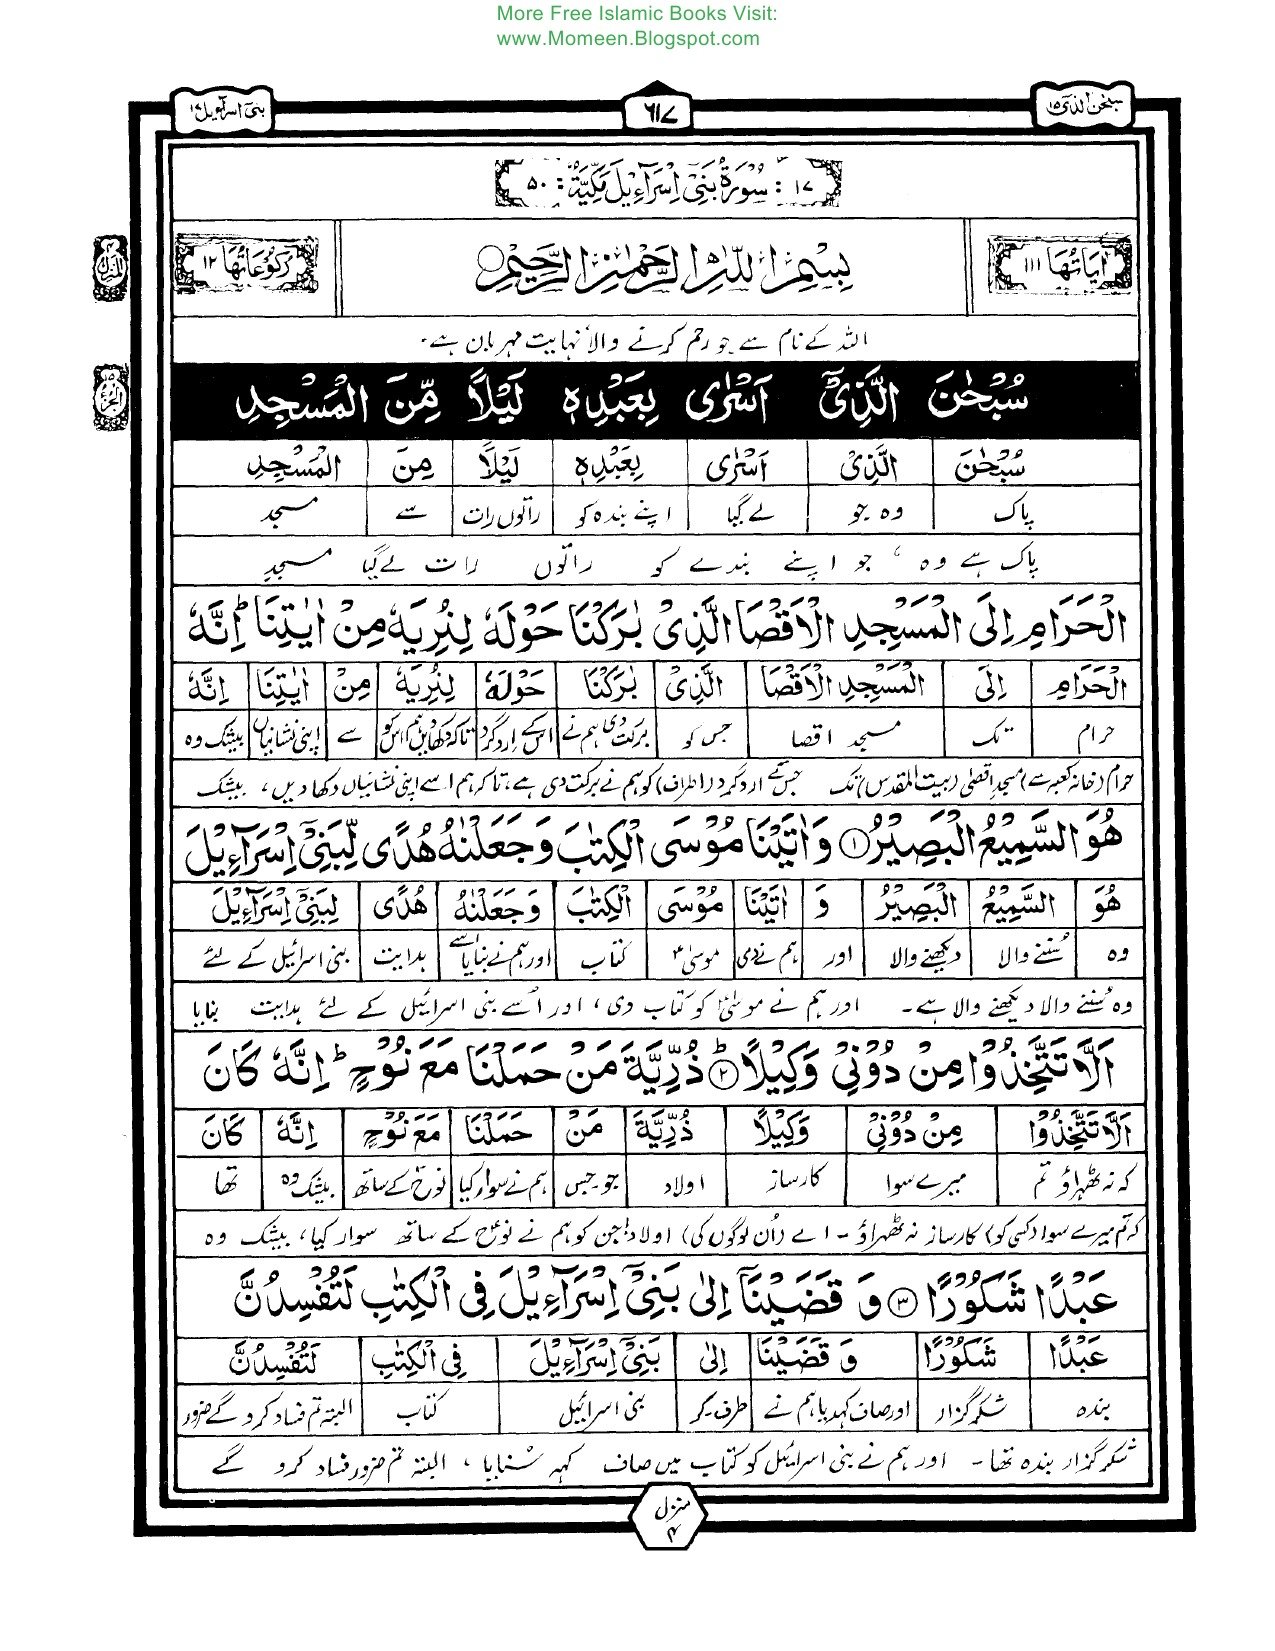 More Free Islamic Books Visit:
www.Momeen.Blogspot.com
سبحٰن الذی ۱۵
۶۱۷
بنی اسرآءیل ۱۷
۱۷: سُوۡرَۃُ بَنِیۡۤ اِسۡرَآءِیۡلَ مَکِّیَّۃٌ: ۵۰
اٰیَاتُهَا ۱۱۱
بِسۡمِ اللّٰهِ الرَّحۡمٰنِ الرَّحِیۡمِ
رُکُوۡعَاتُهَا ۱۲
اللہ کے نام سے جو رحم کرنے والا نہایت مہربان ہے۔
سُبۡحٰنَ الَّذِیۡۤ اَسۡرٰی بِعَبۡدِہٖ لَیۡلًا مِّنَ الۡمَسۡجِدِ
سُبۡحٰنَ الَّذِیۡ اَسۡرٰی بِعَبۡدِہٖ لَیۡلًا مِنَ الۡمَسۡجِدِ
پاک وہ جو لے گیا اپنے بندہ کو راتوں رات سے مسجد
پاک ہے وہ، جو اپنے بندے کو راتوں رات لے گیا مسجدِ
الۡحَرَامِ اِلَی الۡمَسۡجِدِ الۡاَقۡصَا الَّذِیۡ بٰرَکۡنَا حَوۡلَهٗ لِنُرِیَهٗ مِنۡ اٰیٰتِنَا ؕ اِنَّهٗ
الۡحَرَامِ اِلَی الۡمَسۡجِدِ الۡاَقۡصَا الَّذِیۡ بٰرَکۡنَا حَوۡلَهٗ لِنُرِیَهٗ مِنۡ اٰیٰتِنَا اِنَّهٗ
حرام تک مسجد اقصا جس کو برکت دی ہم نے اس کے اردگرد تاکہ دکھا دیں ہم اس کو سے اپنی نشانیاں بیشک وہ
حرام (خانہ کعبہ سے) مسجدِ اقصٰی (بیت المقدس) تک جس کے اردگرد (اطراف) کو ہم نے برکت دی ہے، تاکہ ہم اسے اپنی نشانیاں دکھا دیں، بیشک
هُوَ السَّمِیۡعُ الۡبَصِیۡرُ ۱ وَ اٰتَیۡنَا مُوۡسَی الۡکِتٰبَ وَ جَعَلۡنٰهُ هُدًی لِّبَنِیۡۤ اِسۡرَآءِیۡلَ
هُوَ السَّمِیۡعُ الۡبَصِیۡرُ وَ اٰتَیۡنَا مُوۡسَی الۡکِتٰبَ وَ جَعَلۡنٰهُ هُدًی لِبَنِیۡۤ اِسۡرَآءِیۡلَ
وہ سُننے والا دیکھنے والا اور ہم نے دی موسیٰؑ کتاب اور ہم نے بنایا اسے ہدایت بنی اسرائیل کے لئے
وہ سُننے والا دیکھنے والا ہے۔ اور ہم نے موسیٰؑ کو کتاب دی، اور اُسے بنی اسرائیل کے لئے ہدایت بنایا
اَلَّا تَتَّخِذُوۡا مِنۡ دُوۡنِیۡ وَکِیۡلًا ؕ ۲ ذُرِّیَّةَ مَنۡ حَمَلۡنَا مَعَ نُوۡحٍ ؕ اِنَّهٗ کَانَ
اَلَّا تَتَّخِذُوۡا مِنۡ دُوۡنِیۡ وَکِیۡلًا ذُرِّیَّةَ مَنۡ حَمَلۡنَا مَعَ نُوۡحٍ اِنَّهٗ کَانَ
کہ نہ ٹھہراؤ تم میرے سوا کارساز اولاد جو۔جس ہم نے سوار کیا نوحؑ کے ساتھ بیشک وہ تھا
کہ تم میرے سوا (کسی کو) کارساز نہ ٹھہراؤ۔ اے (اُن لوگوں کی) اولاد! جن کو ہم نے نوحؑ کے ساتھ سوار کیا، بیشک وہ
عَبۡدًا شَکُوۡرًا ۳ وَ قَضَیۡنَاۤ اِلٰی بَنِیۡۤ اِسۡرَآءِیۡلَ فِی الۡکِتٰبِ لَتُفۡسِدُنَّ
عَبۡدًا شَکُوۡرًا وَ قَضَیۡنَا اِلٰی بَنِیۡۤ اِسۡرَآءِیۡلَ فِی الۡکِتٰبِ لَتُفۡسِدُنَّ
بندہ شکرگزار اور صاف کہدیا ہم نے طرف۔کو بنی اسرائیل کتاب البتہ تم فساد کروگے ضرور
شکرگزار بندہ تھا۔ اور ہم نے بنی اسرائیل کو کتاب میں صاف کہہ سُنایا، البتہ تم ضرور فساد کرو گے
منزل
۴